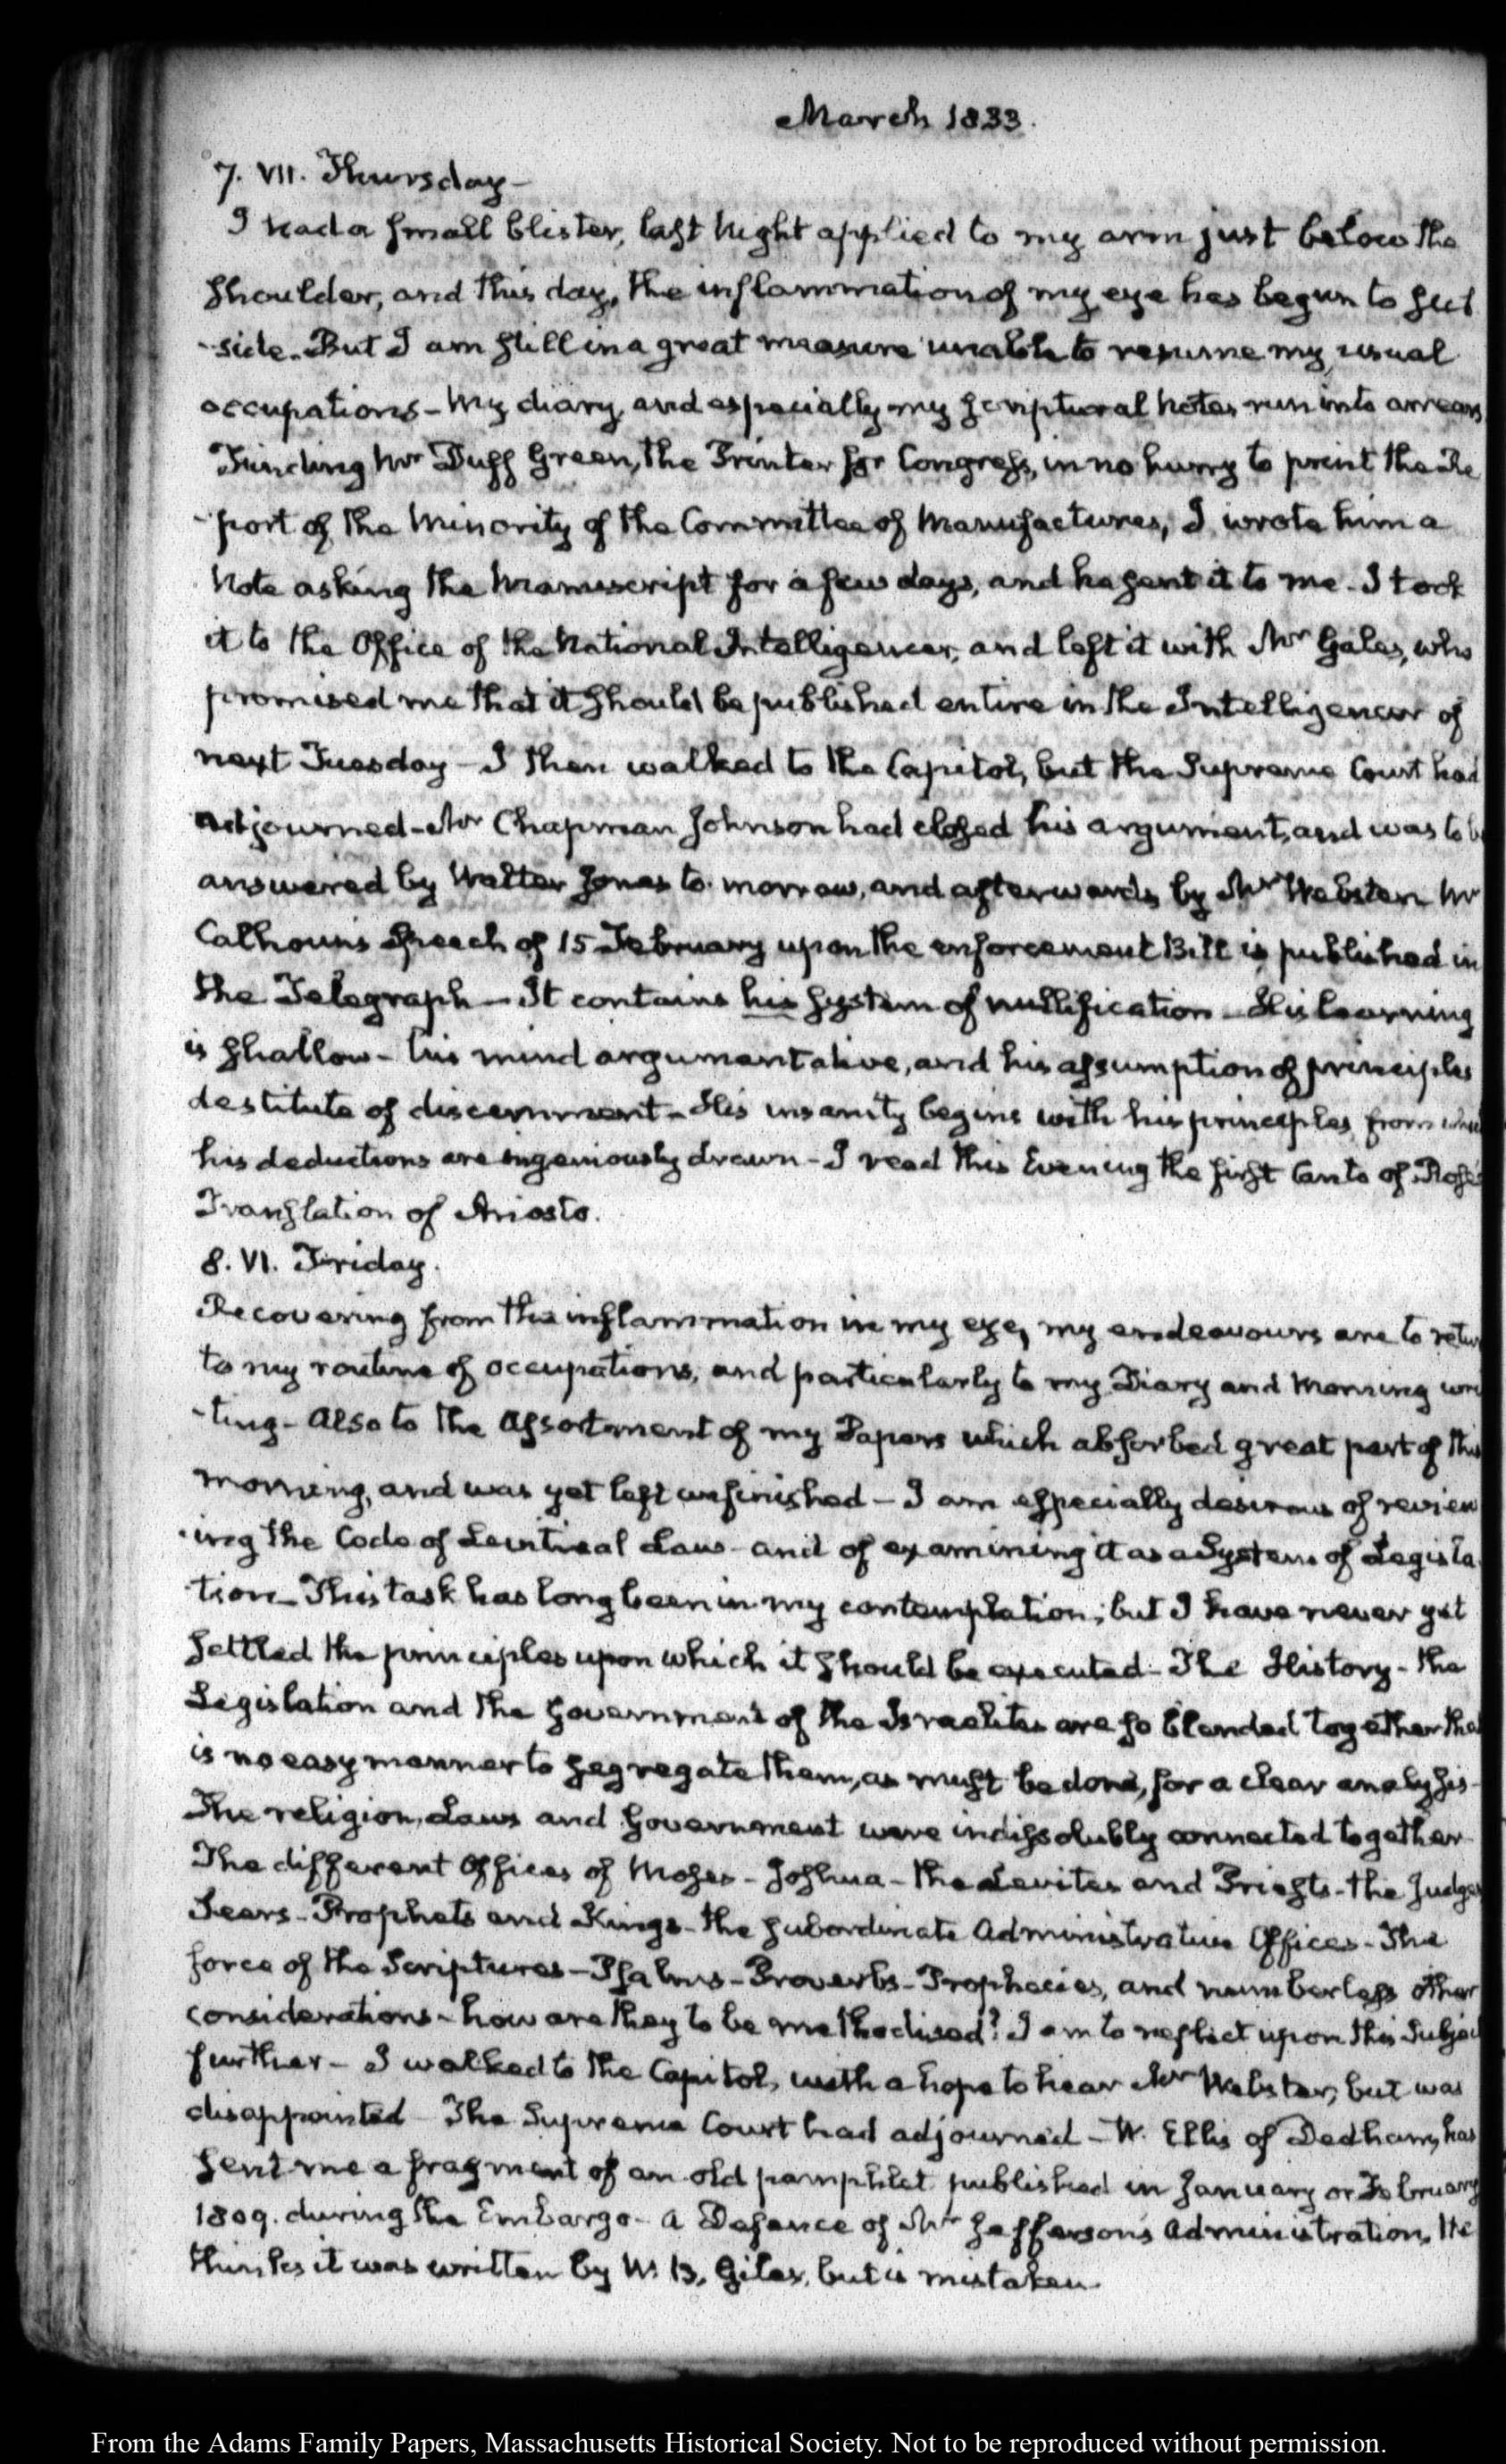 March 1833.
7. VII. Thursday-
I had a small blister, last Night applied to my arm just below the
shoulder, and this day, the inflammation of my eye has begun to sub
-side. But I am still in a great measure unable to resume my usual
occupations- My diary, and especially my scriptural Notes run into arrears
Finding Mr Duff Green, the Printer for Congress, in no hurry to print the Re
-port of the Minority of the Committee of Manufactures, I wrote him a
Note asking the Manuscript for a few days, and he sent it to me. I took
it to the Office of the National Intelligencer, and left it with Mr Gales, who
promised me that it should be published entire in the Intelligencer of
next Tuesday- I then walked to the Capitol, but the Supreme Court had
adjourned- Mr Chapman Johnson had closed his argument, and was to be
answered by Walter Jones to-morrow, and afterwards by Mr Webster. Mr
Calhoun's Speech of 15 February upon the enforcement Bill is published in
the Telegraph- It contains his system of nullification- His learning
is shallow- his mind argumentative, and his assumption of principles
destitute of discernment- His insanity begins with his principles, from
his deductions are ingeniously drawn- I read this Evening the first Canto of
Translation of Ariosto.
8. VI. Friday.
Recovering from the inflammation in my eye, my endeavours are to retu
to my routine of occupations, and particularly to my Diary and Morning wri
-ting- Also to the Assortment of my Papers which absorbed great part of this
morning, and was yet left unfinished- I am especially desirous of review
-ing the Code of Levitical Law- and of examining it as a System of Legisla
-tion- This task has long been in my contemplation; but I have never yet
settled the principles upon which it should be executed- The History- the
Legislation and the Government of the Israelites are so blended together tha
is no easy manner to segregate them, as must be done, for a clear analysis-
The religion, Laws and Government were indissolubly connected together-
The different Offices of Moses- Joshua- the Levites and Priests- the Judges
Seers- Prophets and Kings- the subordinate Administrative Offices- The
force of the Scriptures- Psalms- Proverbs- Prophecies, and numberless other
considerations- how are they to be methodised? I am to reflect upon this subject
further- I walked to the Capitol, with a hope to hear Mr Webster, but was
disappointed- The Supreme Court had adjourned- W. Ellis of Dedham, has
sent me a fragment of an old pamphlet published in January or February
1809. during the Embargo- A Defence of Mr Jefferson's Administration, He
thinks it was written by W. B. Giles, but is mistaken.
From the Adams Family Papers, Massachusetts Historical Society. Not to be reproduced without permission.